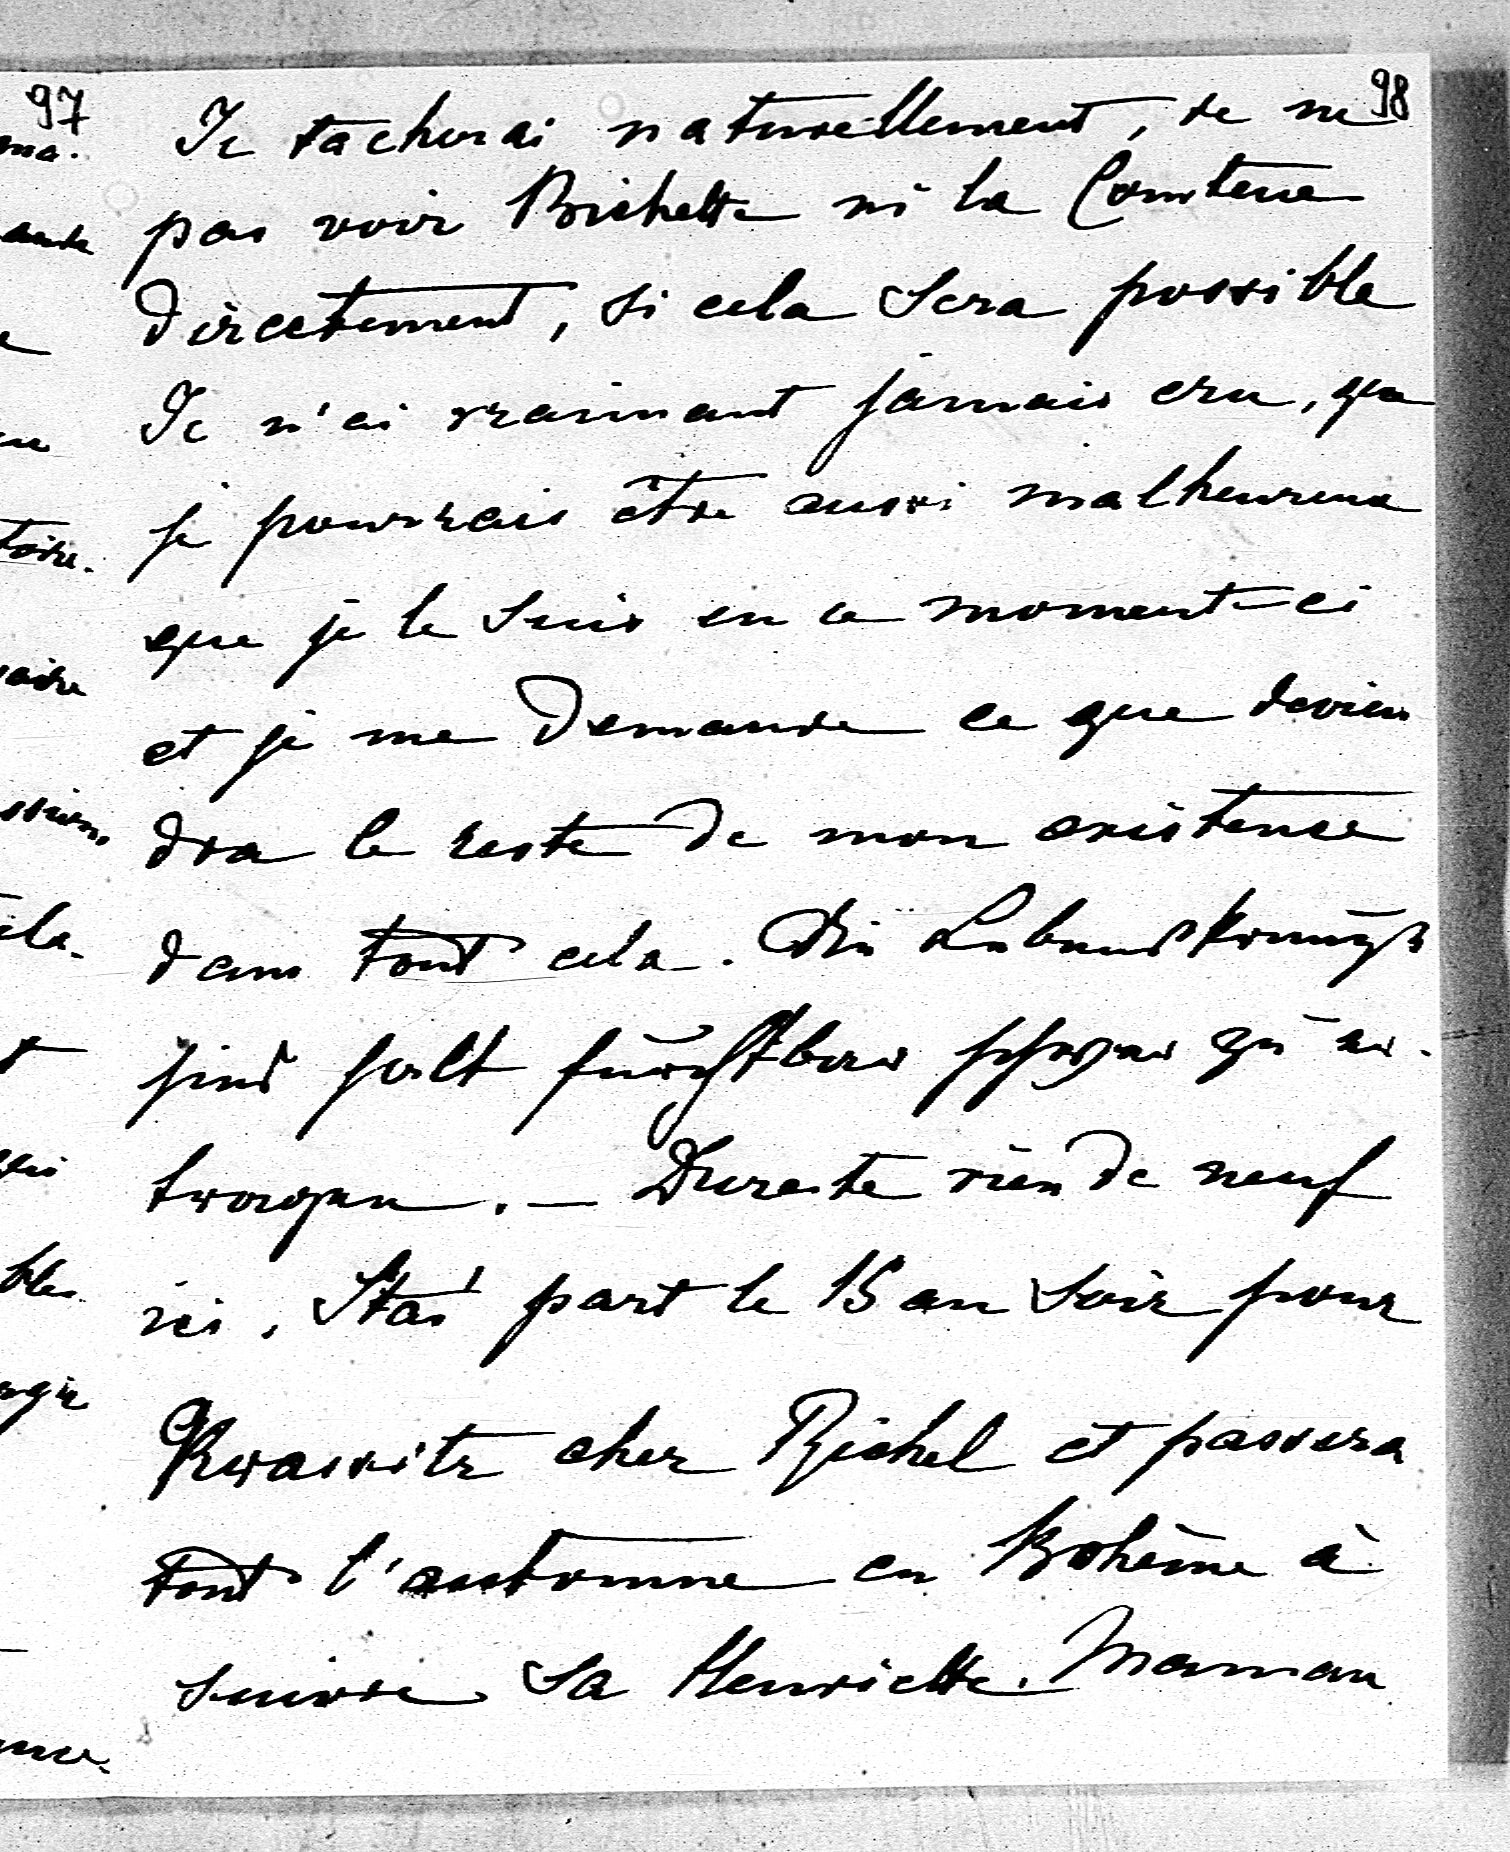 97
98
Je tacherai naturellement, de ne
pas voir Bichette ni la Comtesse
directement, si cela sera possible
Je n'ai vraimant jamais cru, que
je pourrais être aussi malheureux
que je le suis en ce moment-ci
et je me demande ce que devien
dra le reste de mon existence
dans tout cela. Die
sind halt furchtbar schwer zu er-
tragen. – Dureste rien de neuf
ici. Staś part le 15 au soir pour
Kwassitz chez Richel et passera
tout l'automne en Bohème à
suivre sa Henriette. Maman